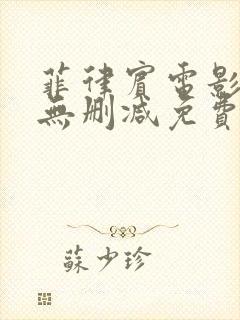 菲律賓電影
無刪减免費
蘇少珍